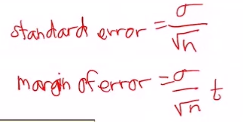 standard error = σ/√n
margin of error = σ/√n t